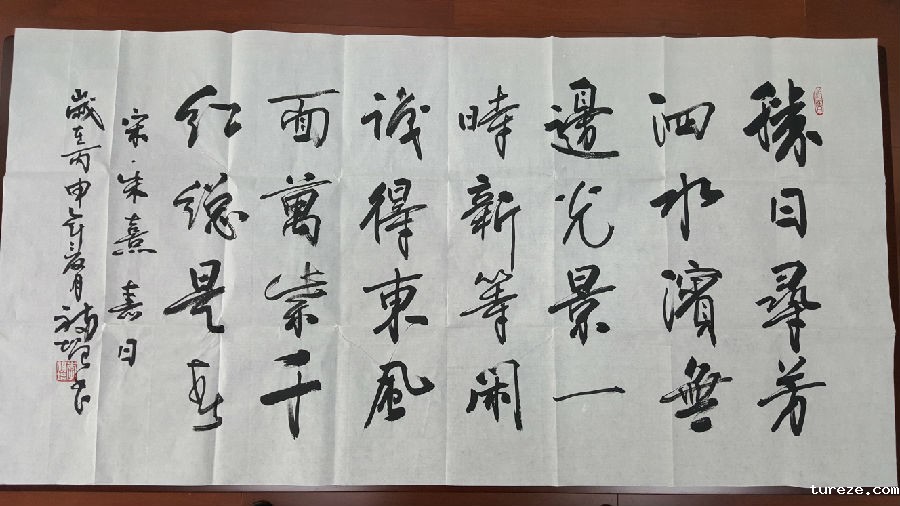 勝日尋芳
泗水濱無
邊光景一
時新等閑
識得東風
面萬紫千
紅總是春
宋·朱熹 日
歲在丙申年夏月 书
tureze.com